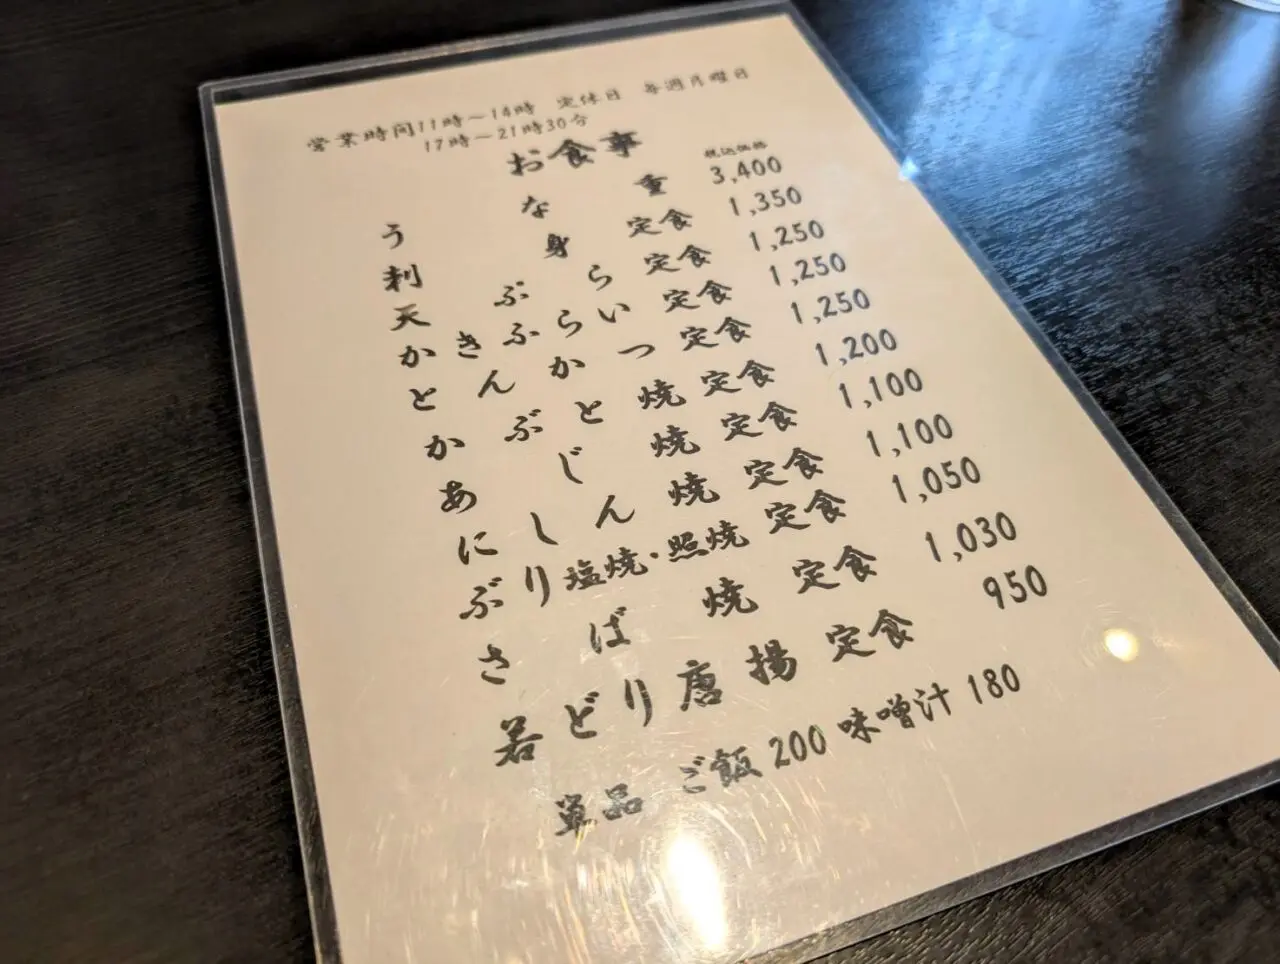 営業時間11時～14時 定休日 毎週月曜日
17時～21時30分
お食事
税込価格
うな重 3,400
刺身定食 1,350
天ぷら定食 1,250
かきふらい定食 1,250
とんかつ定食 1,250
かぶと焼定食 1,200
あじ焼定食 1,100
にしん焼定食 1,100
ぶり塩焼・照焼定食 1,050
さば焼定食 1,030
若どり唐揚定食 950
単品 ご飯 200 味噌汁 180